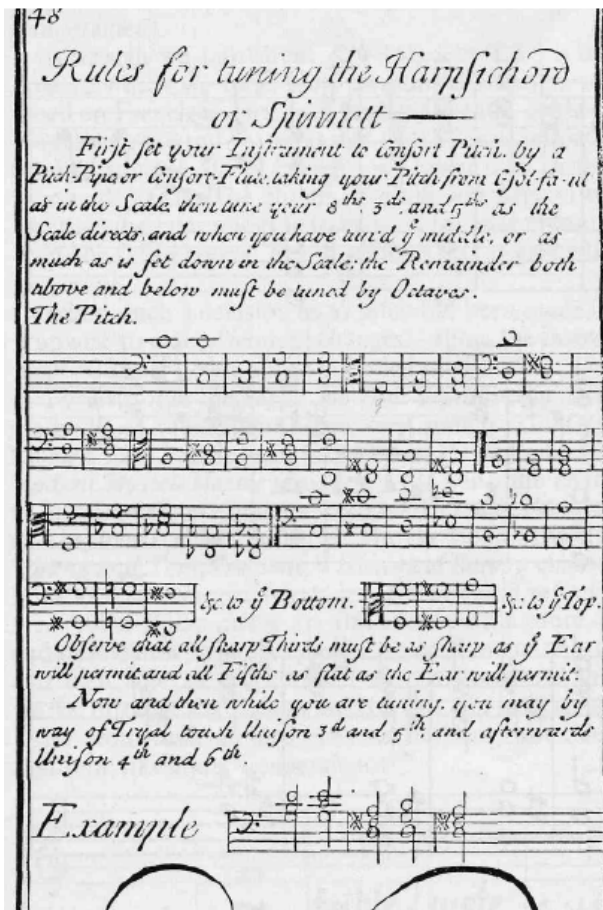 48
Rules for tuning the Harpsichord
or Spinnett
First set your Instrument to Consort Pitch, by a
Pitch-Pipe, or Consort-Flute, taking your Pitch from C sol-fa-ut
as in the Scale, then tune your 8ths 3ds, and 5ths as the
Scale directs, and when you have tun'd ye middle, or as
much as is set down in the Scale; the Remainder both
above and below must be tuned by Octaves.
The Pitch.
&c: to ye Bottom. &c: to ye Top.
Observe that all sharp Thirds must be as sharp as ye Ear
will permit and all Fifths as flat as the Ear will permit.
Now and then while you are tuning, you may by
way of Tryal touch Unison 3d and 5th and afterwards
Unison 4th and 6th.
Example